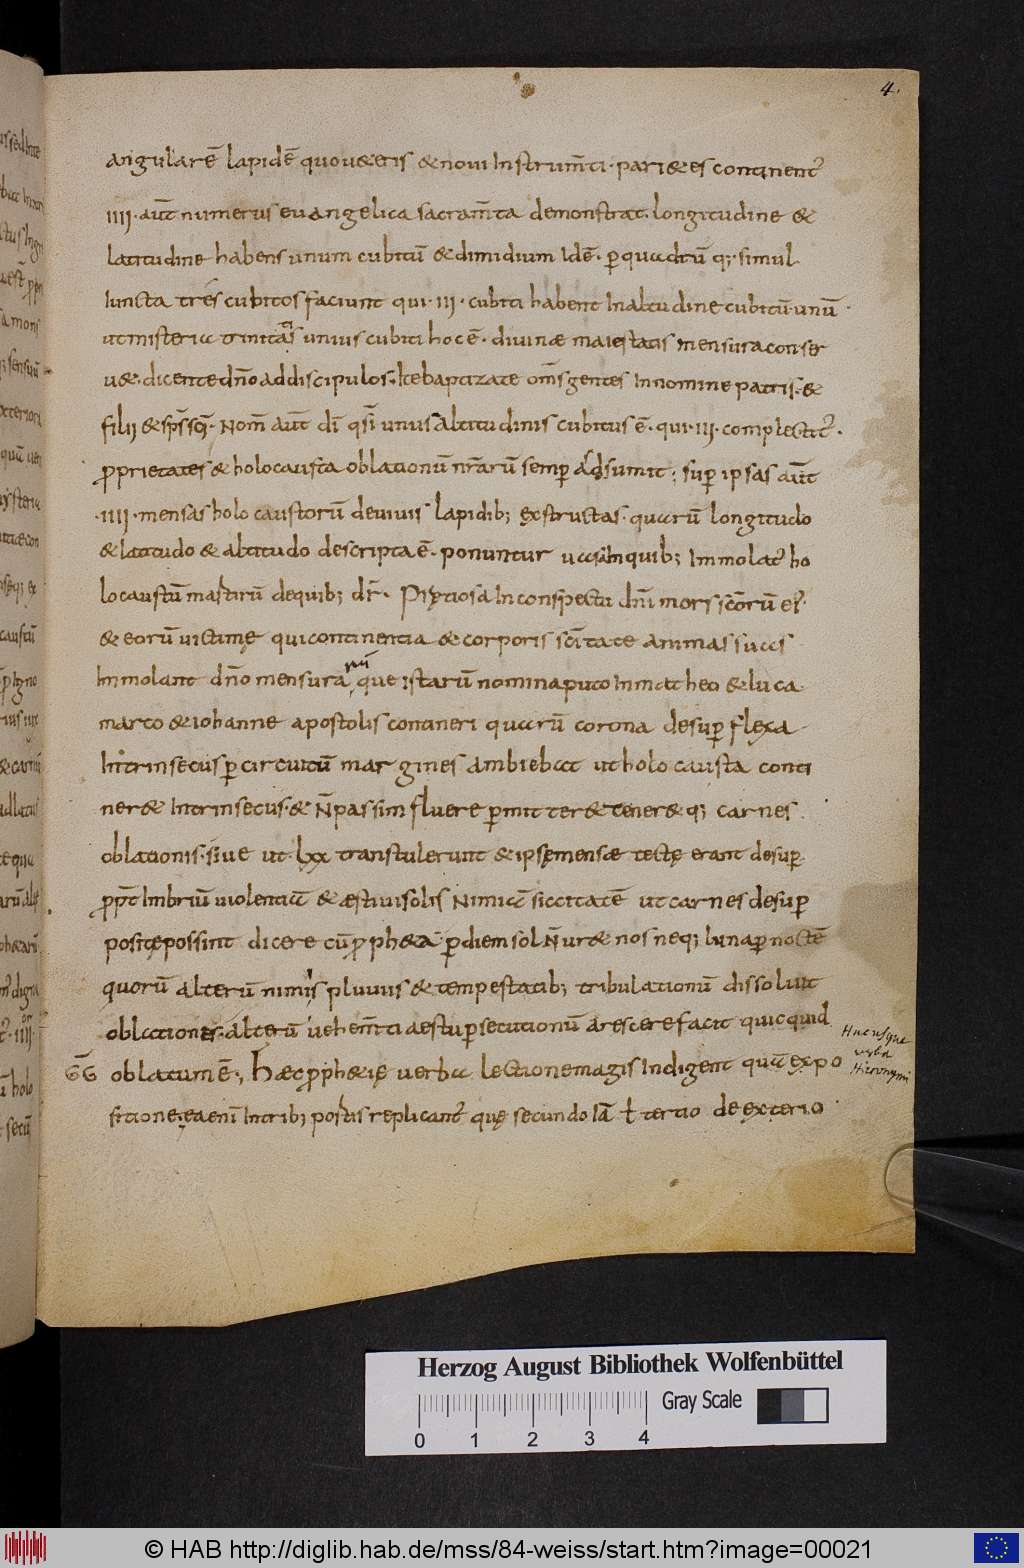 4.
angularē lapidē quo u&eris & noui Instrum̄ti · pari&es continent᷒
IIII · aūt numerus euangelica sacram̄ta demonstrat · longitudine &
latitudine habens unum cubitū & dimidium Idē · ꝑ quadrū q; · simul
Iuncta tres cubitos faciunt qui · III · cubiti habent In altitudine cubitū · unū ·
ut misteria trinitas unius cubiti hoc ē · diuinae maiestatis mensura conser
u& · dicente dn̄o ad discipulos · Ite baptizate om̄s gentes In nomine patris · &
filii & sp̄s sc̄i · Nom̄ aūt dī qsī unus altitudinis cubitus ē · qui · III · complectit᷒ ·
proprietates & holocausta oblationū nr̄arū semꝑ adsumit ; suꝑ ipsas aūt
· IIII · mensas holocaustorū de uiuis lapidib; exstructas · quarū longitudo
& latitudo & altitudo descripta ē · ponuntur uasa In quib; Immolat᷒ ho
locaustū martirū de quib; dr̄ · Pretiosa In conspectu dn̄i mors sc̄orū ei᷒ ·
& eorū uictimę qui continentia & corporis sc̄itate animas suas
Immolant dn̄o mensura IIII que istarū nomina puto In matheo & luca
marco & iohanne apostolis contineri quarū corona desuꝑ flexa
Intrinsecus ꝑ circuitū margines ambiebat ut holocausta conti
ner& Intrinsecus · & n̄ passim fluere ꝑmitter& tener& q; carnes
oblationis · siue ut · lxx transtulerunt & ipsę mensae tectę erant desuꝑ
ꝓpt̄ Imbriū uiolentiā & aestiui solis nimiā siccitatē ut carnes desuꝑ
positę possint dicere cū ꝓph&a ꝑ diem sol n̄ ur& nos neq; luna ꝑ noctē
quorū alterū nimis pluuiis & tempestatib; tribulationū dissoluit
oblationes · alterū uehem̄ti aestu ꝑsecutionū arescere facit quicquid
oblatum ē ·, Haec ꝓph&ię uerba lectione magis Indigent quā expo
Hucusque
verba
Hieronymi
sitione · ea enī In trib; portis replicant᷒ quę secundo Iā ł tertio de exterio
Herzog August Bibliothek Wolfenbüttel
Gray Scale
0 1 2 3 4
© HAB http://diglib.hab.de/mss/84-weiss/start.htm?image=00021